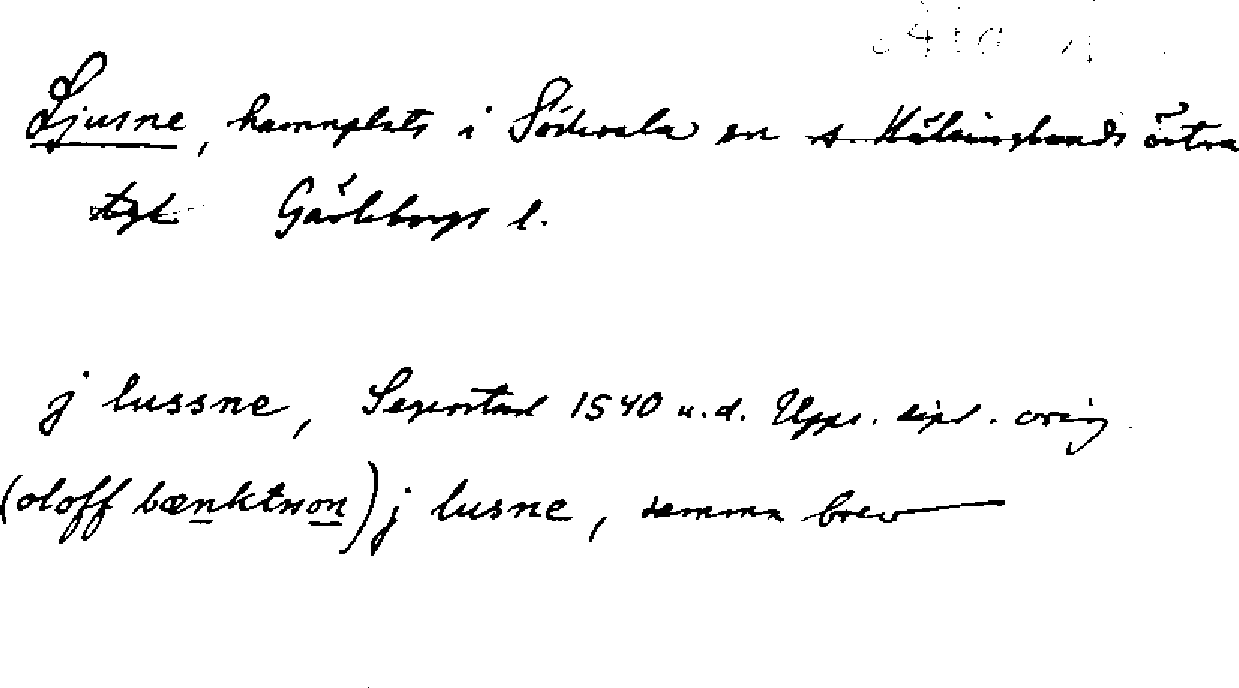 Ljusne, hamnplats i Söderala sn s. Hälsinglands östra
tgt Gävleborgs l.
j lussne, Segerstad 1540 u.d. Upps. dipl. orig
(oloff bænktsson) j lusne, samma brev